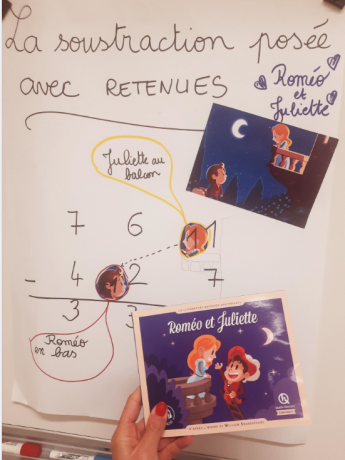 La soustraction posée
avec RETENUES
Roméo
et
Juliette
Juliette au
balcon
7 6 1
- 4 2 7
3 3
Roméo
en bas
Roméo et Juliette
D'APRÈS L'ŒUVRE DE WILLIAM SHAKESPEARE